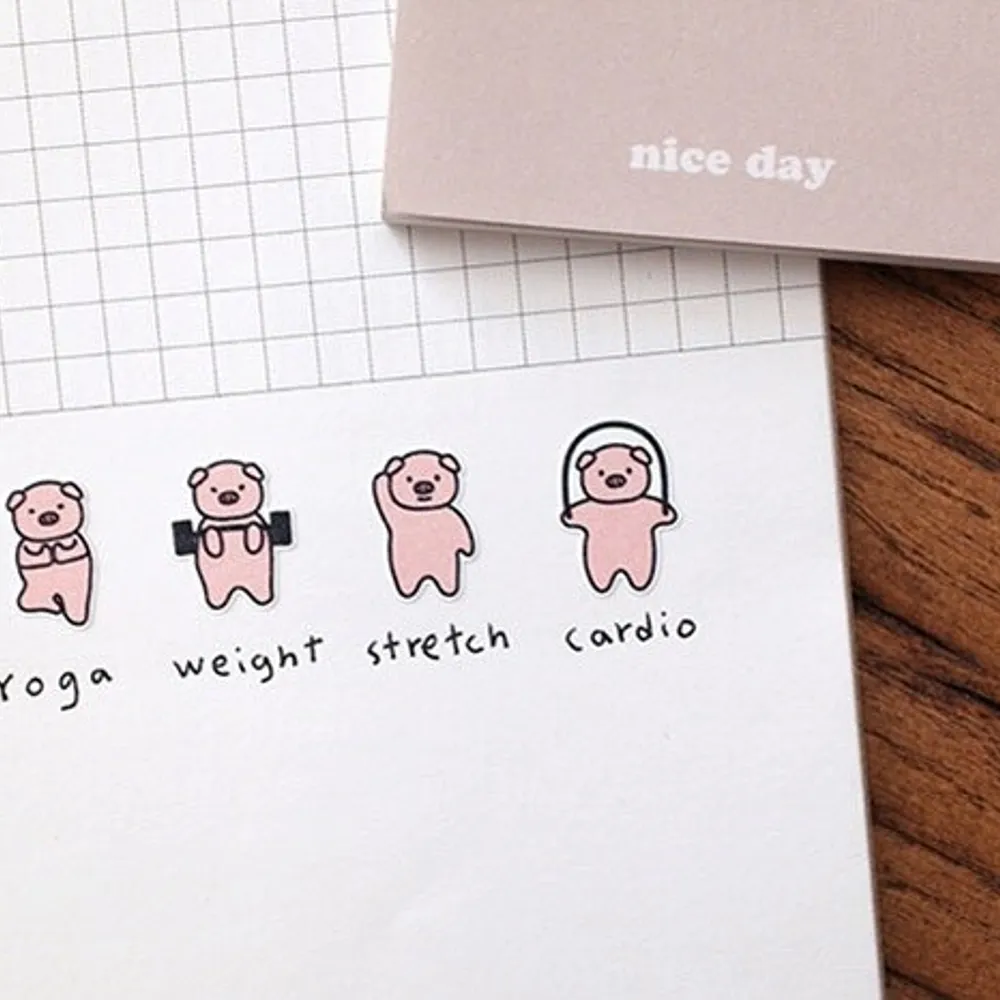 nice day
yoga weight stretch cardio